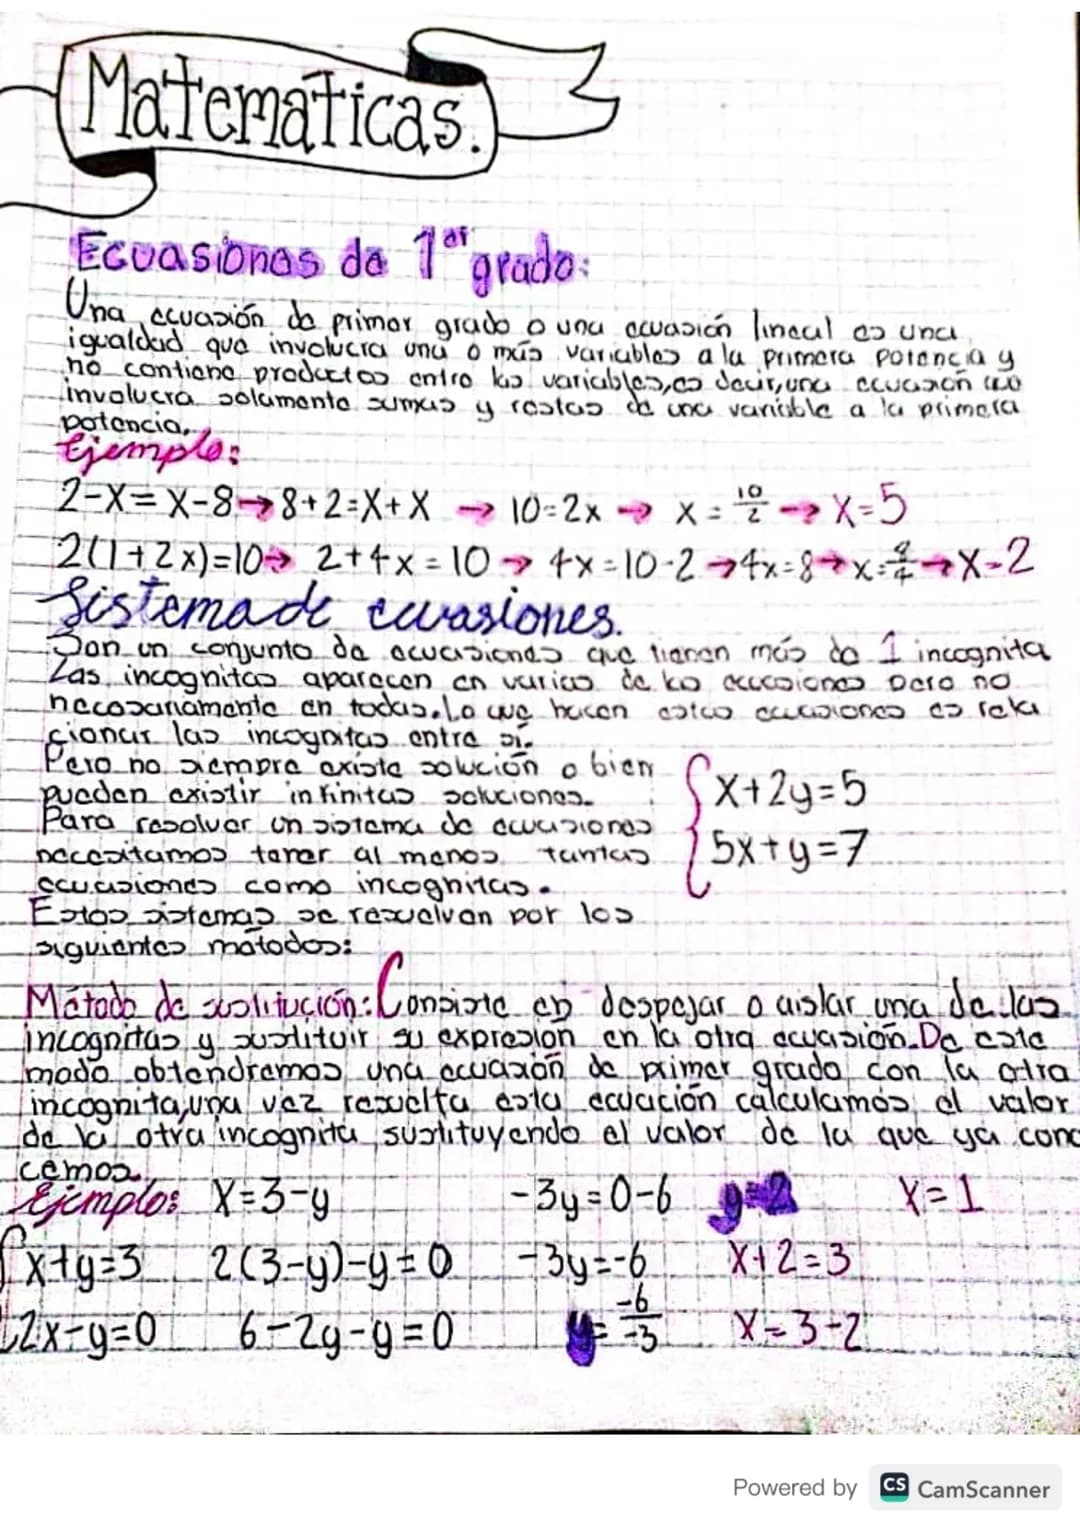 Matematicas.
Ecuasiones de 1er grado:
Una ecuasión de primer grado o una ecuasión lineal es una
igualdad que involucra una o más variables a la primera potencia y
no contiene productos entre las variables, es decir, una ecuasión que
involucra solamente sumas y restas de una variable a la primera
potencia.
Ejemplo:
2-X=X-8→8+2=X+X → 10=2x → x=10/2→X=5
2(1+2x)=10→ 2+4x=10→ 4x=10-2→4x=8→x=8/4→X=2
Sistema de ecuasiones.
Son un conjunto de ecuasiones que tienen más de 1 incognita
Las incognitas aparecen en varias de las ecuasiones pero no
necesariamente en todas. Lo que hacen estas ecuasiones es rela
cionar las incognitas entre sí.
Pero no siempre existe solución o bien
pueden existir infinitas soluciones.
Para resolver un sistema de ecuasiones
necesitamos tener al menos tantas
ecuasiones como incognitas.
Estos sistemas se resuelven por los
siguientes métodos:
{x+2y=5
5x+y=7
Método de sustitución: Consiste en despejar o aislar una de las
incognitas y sustituir su expresión en la otra ecuasión. De este
modo obtendremos una ecuasión de primer grado con la otra
incognita, una vez resuelta esta ecuación calculamos el valor
de la otra incognita sustituyendo el valor de la que ya cono
cemos.
Ejemplo: X=3-y -3y=0-6 y=2 X=1
{x+y=3 2(3-y)-y=0 -3y=-6 X+2=3
2x-y=0 6-2y-y=0 y=-6/-3 X=3-2
Powered by CS CamScanner